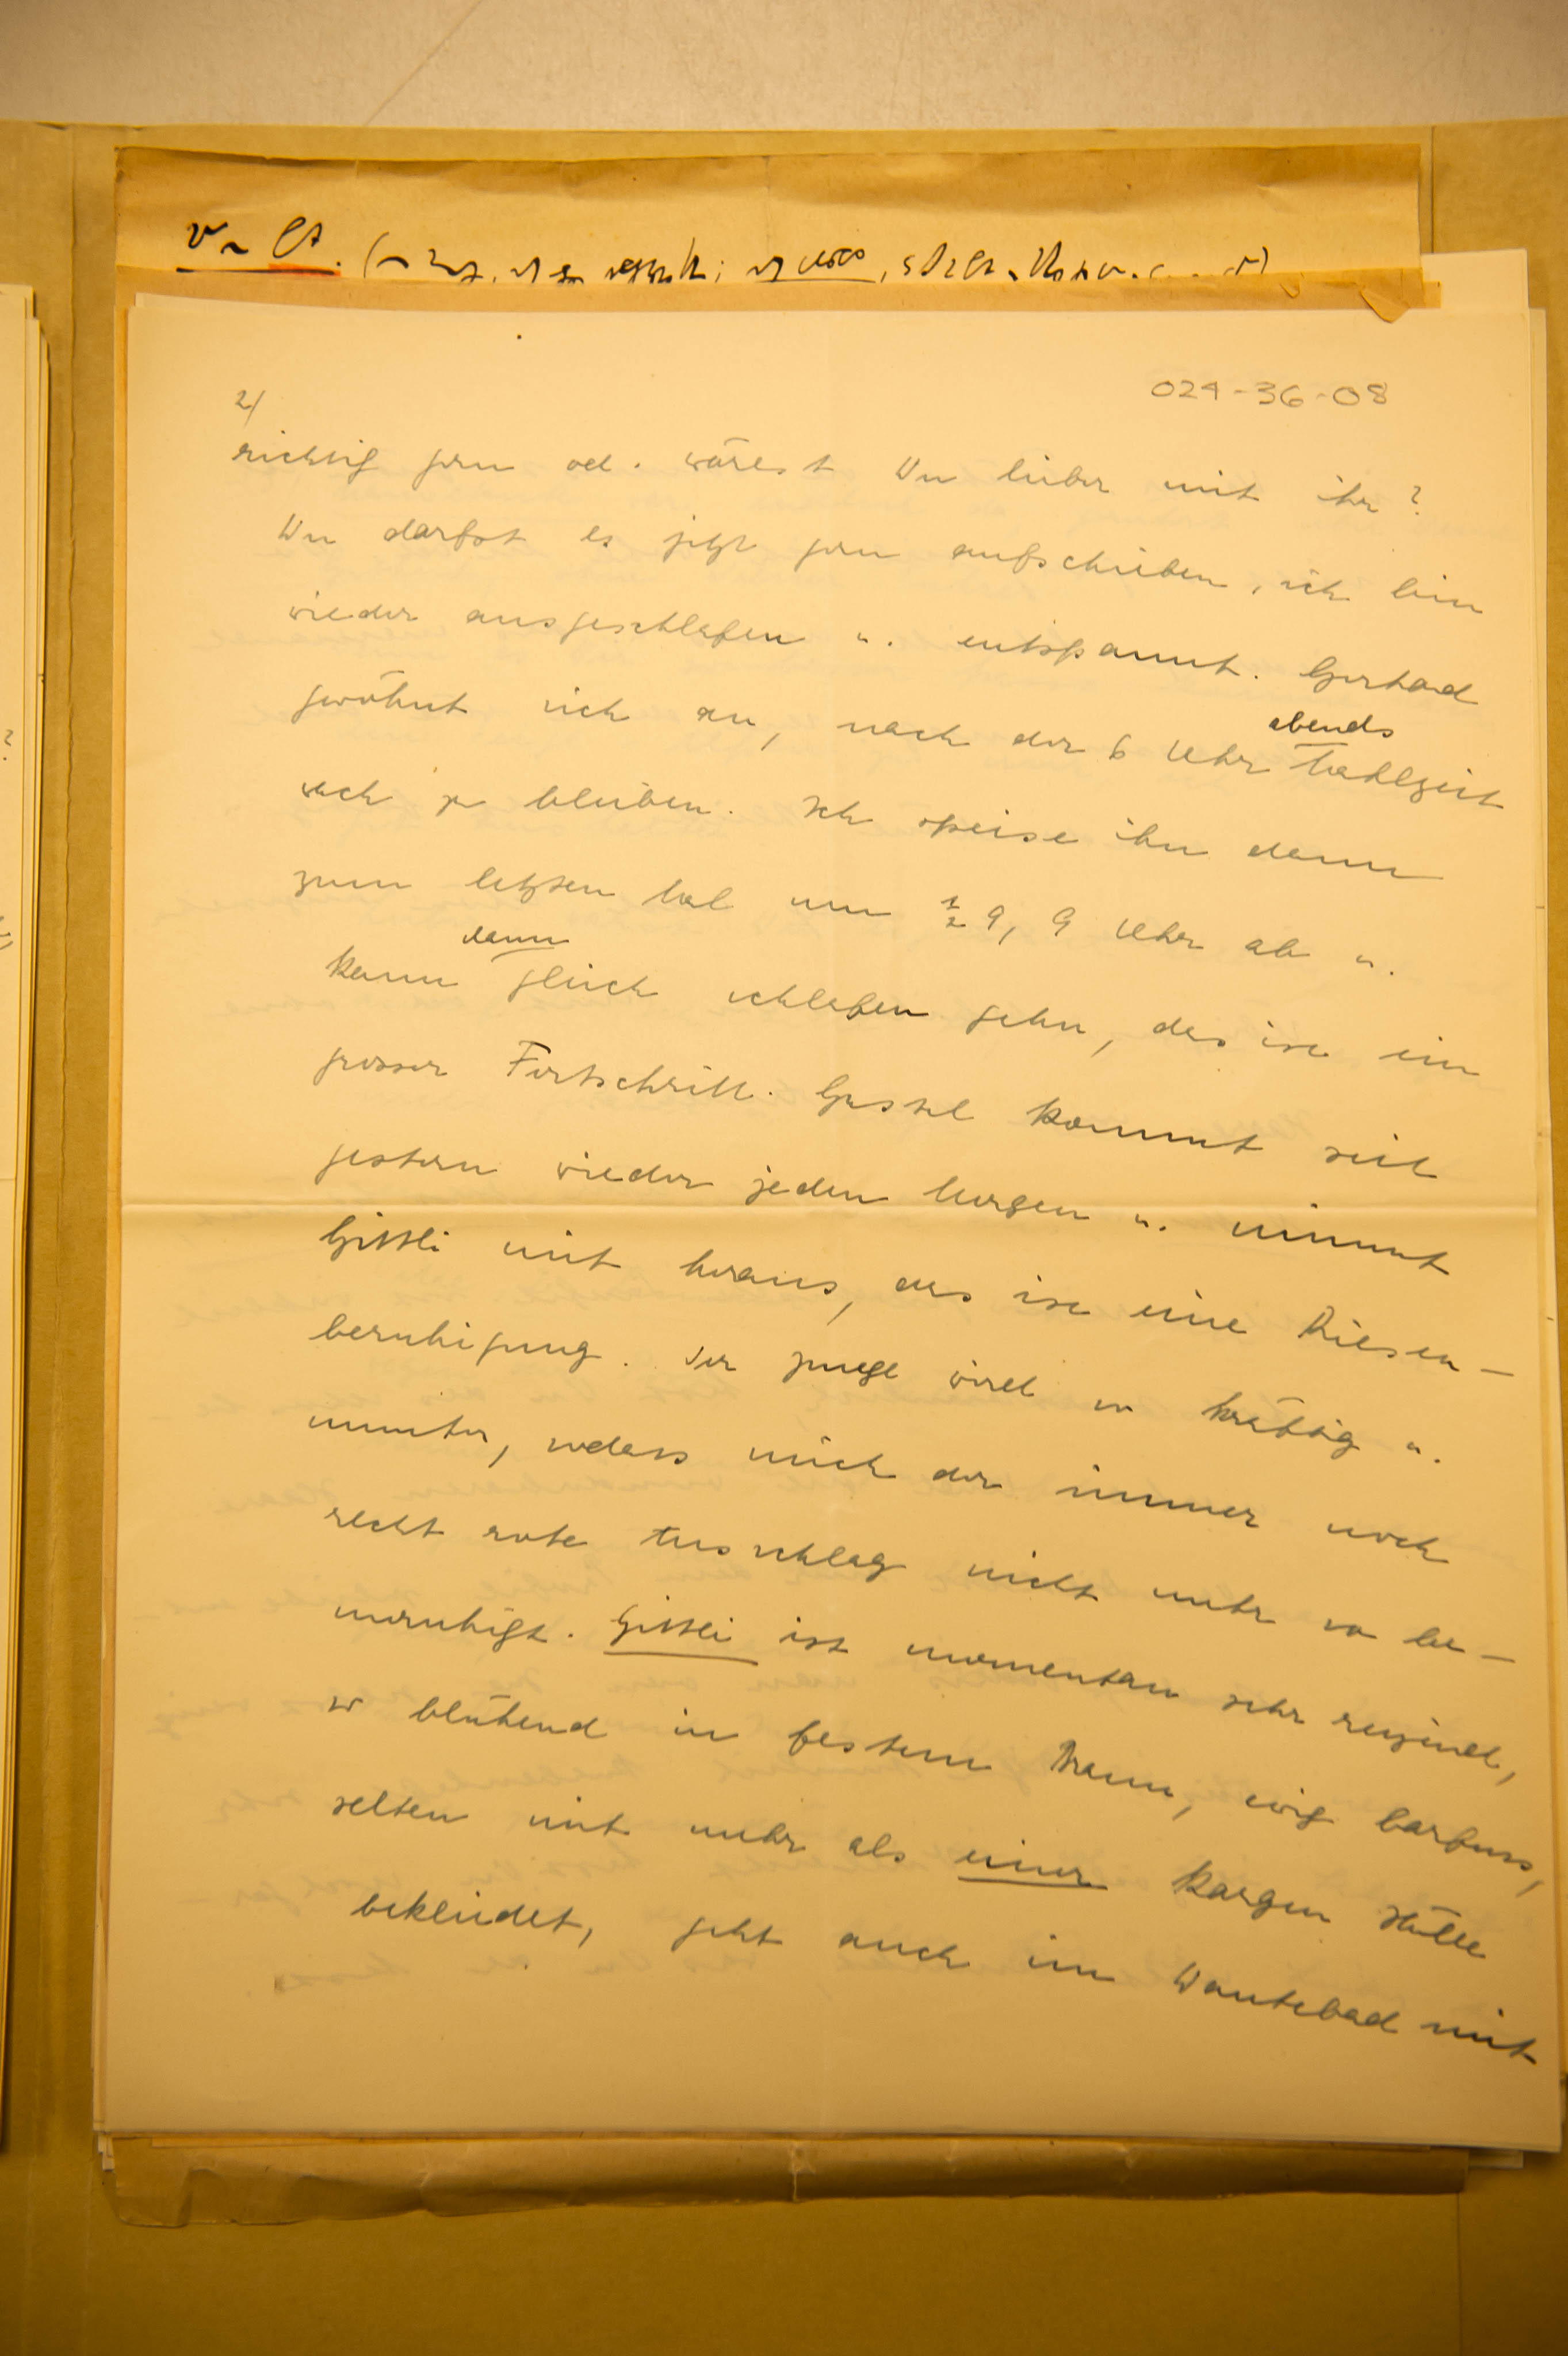 024-36-08
2/
richtig gern od. wärest Du lieber mit ihr?
Du darfst es jetzt gern aufschieben, ich bin
wieder ausgeschlafen u. entspannt. Gerhard
gewöhnt sich an, nach der 6 Uhr abends Mahlzeit
wach zu bleiben. Ich speise ihn dann
zum letzten Mal um ½9, 9 Uhr ab u.
kann dann gleich schlafen gehn, das ist ein
grosser Fortschritt. Gustel kommt seit
gestern wieder jeden Morgen u. nimmt
Gittli mit heraus, das ist eine Riesen-
beruhigung. Der Junge wird so kräftig u.
munter, sodass mich der immer noch
recht rote Ausschlag nicht mehr so be-
unruhigt. Gittli ist momentan sehr reizend,
so blühend in festem Braun, ewig barfuss,
selten mit mehr als einer kargen Hülle
bekleidet, geht auch im Wantebad mit